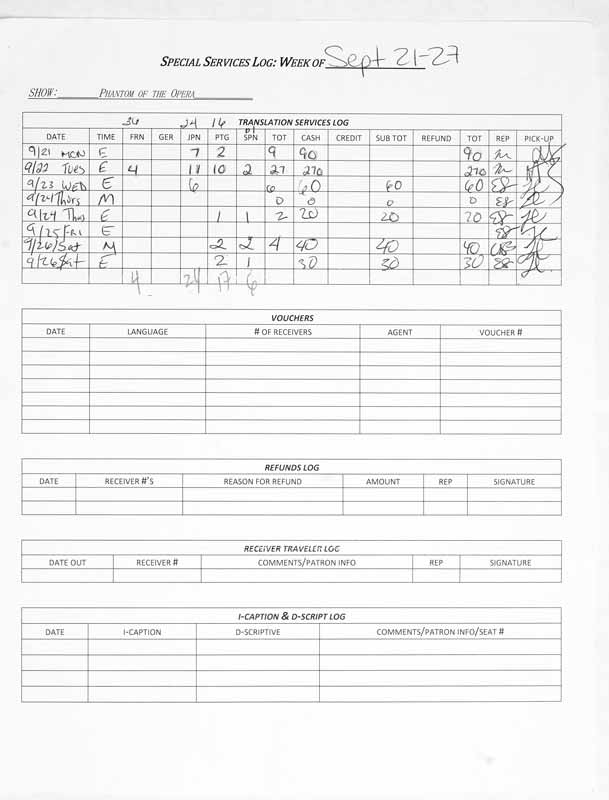 SPECIAL SERVICES LOG: WEEK OF Sept 21-27
SHOW: PHANTOM OF THE OPERA
36 24 16 TRANSLATION SERVICES LOG
DATE TIME FRN GER JPN PTG SPN TOT CASH CREDIT SUB TOT REFUND TOT REP PICK-UP
9/21 MON E 7 2 9 90 90
9/22 TUES E 4 11 10 2 27 270 270
9/23 WED E 6 6 60 60 60 EB
9/24 Thurs M 0 0 0 0 EB
9/24 Thus E 1 1 2 20 20 20 EB
9/25 FRI E EB
9/26/Sat M 2 2 4 40 40 40
9/26 Sat E 2 1 30 30 30 EB
4 24 17 6
VOUCHERS
DATE LANGUAGE # OF RECEIVERS AGENT VOUCHER #
REFUNDS LOG
DATE RECEIVER #'S REASON FOR REFUND AMOUNT REP SIGNATURE
RECEIVER TRAVELER LOG
DATE OUT RECEIVER # COMMENTS/PATRON INFO REP SIGNATURE
I-CAPTION & D-SCRIPT LOG
DATE I-CAPTION D-SCRIPTIVE COMMENTS/PATRON INFO/SEAT #